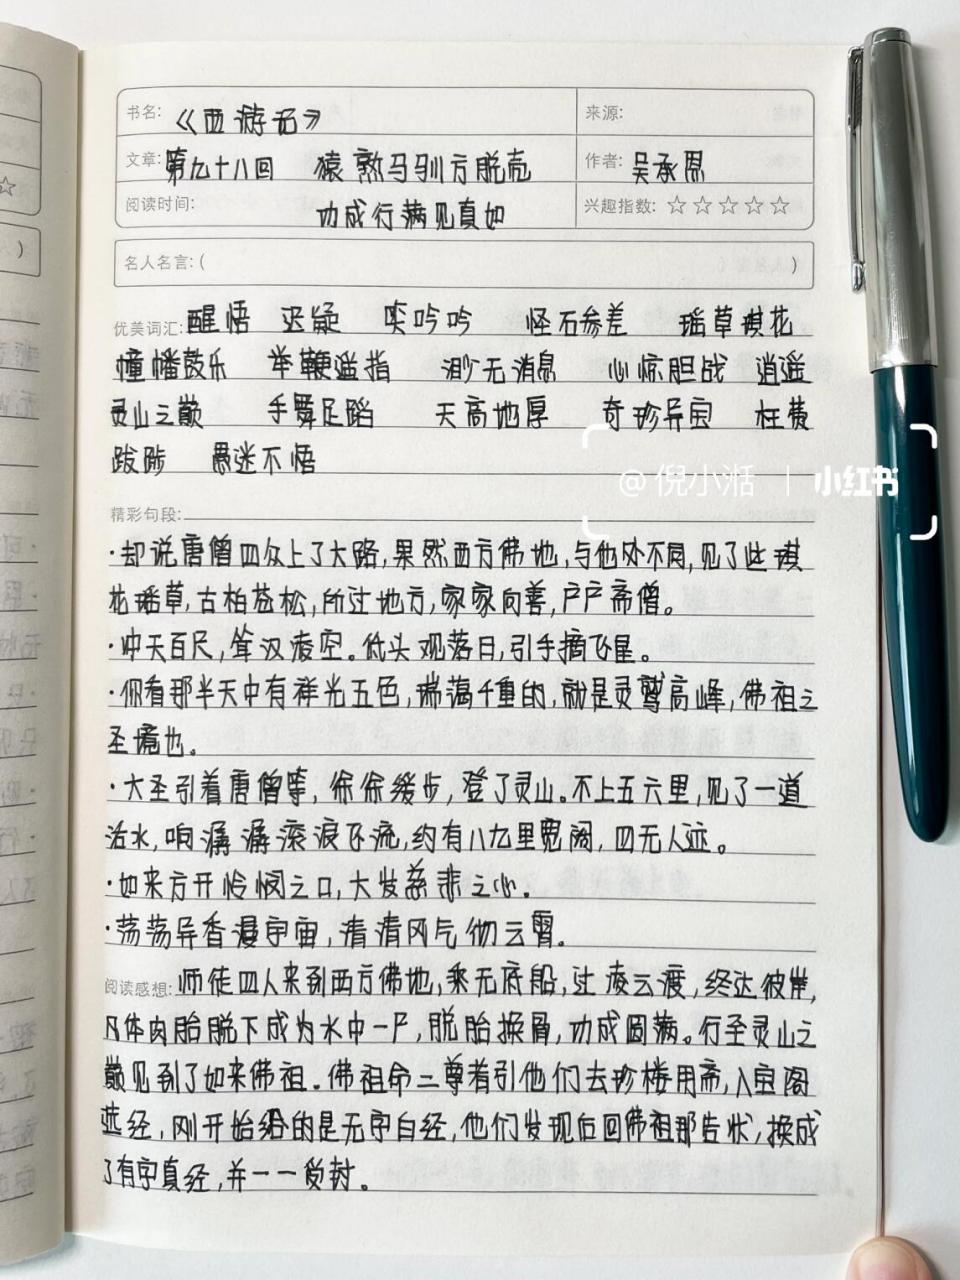 书名: 《西游记》 来源:
文章: 第九十八回 猿熟马驯方脱壳 作者: 吴承恩
阅读时间: 功成行满见真如 兴趣指数: ☆☆☆☆☆
名人名言: ( )
优美词汇: 醒悟 迟疑 笑吟吟 怪石参差 瑶草琪花
幢幡鼓乐 举鞭遥指 渺无消息 心惊胆战 逍遥
灵山之巅 手舞足蹈 天高地厚 奇珍异宝 枉费
跋陟 愚迷不悟
@倪小湉 | 小红书
精彩句段:
·却说唐僧四众上了大路,果然西方佛地,与他处不同,见了些琪
花瑶草,古柏苍松,所过地方,家家向善,户户斋僧。
·冲天百尺,耸汉凌空。低头观落日,引手摘飞星。
·你看那半天中有祥光五色,瑞蔼千重的,就是灵鹫高峰,佛祖之
圣境也。
·大圣引着唐僧等,徐徐缓步,登了灵山。不上五六里,见了一道
活水,响潺潺滚浪飞流,约有八九里宽阔,四无人迹。
·如来方开怜悯之口,大发慈悲之心。
·荡荡异香漫宇宙,清清风气彻云霄。
阅读感想: 师徒四人来到西方佛地,乘无底船,过凌云渡,终达彼岸,
凡体肉胎脱下成为水中一尸,脱胎换骨,功成圆满。行至灵山之
巅见到了如来佛祖。佛祖命二尊者引他们去珍楼用斋,入宝阁
选经,刚开始给的是无字白经,他们发现后回佛祖那告状,换成
了有字真经,并一一贴封。
☆
)